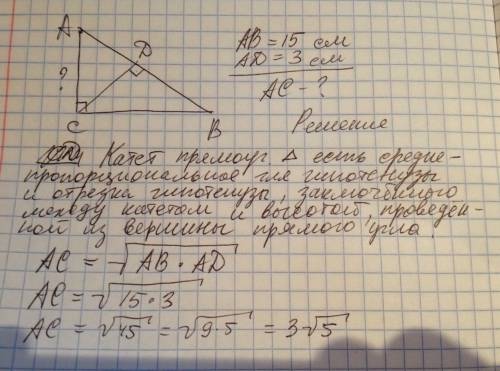 A
D
?
C
B
AB = 15 см
AD = 3 см
AC - ?
Решение
Катет прямоуг. △ есть средне-
пропорциональное для гипотенузы
и отрезка гипотенузы, заключённого
между катетом и высотой, проведен-
ной из вершины прямого угла.
AC = √AB · AD
AC = √15 · 3
AC = √45 = √9·5 = 3√5